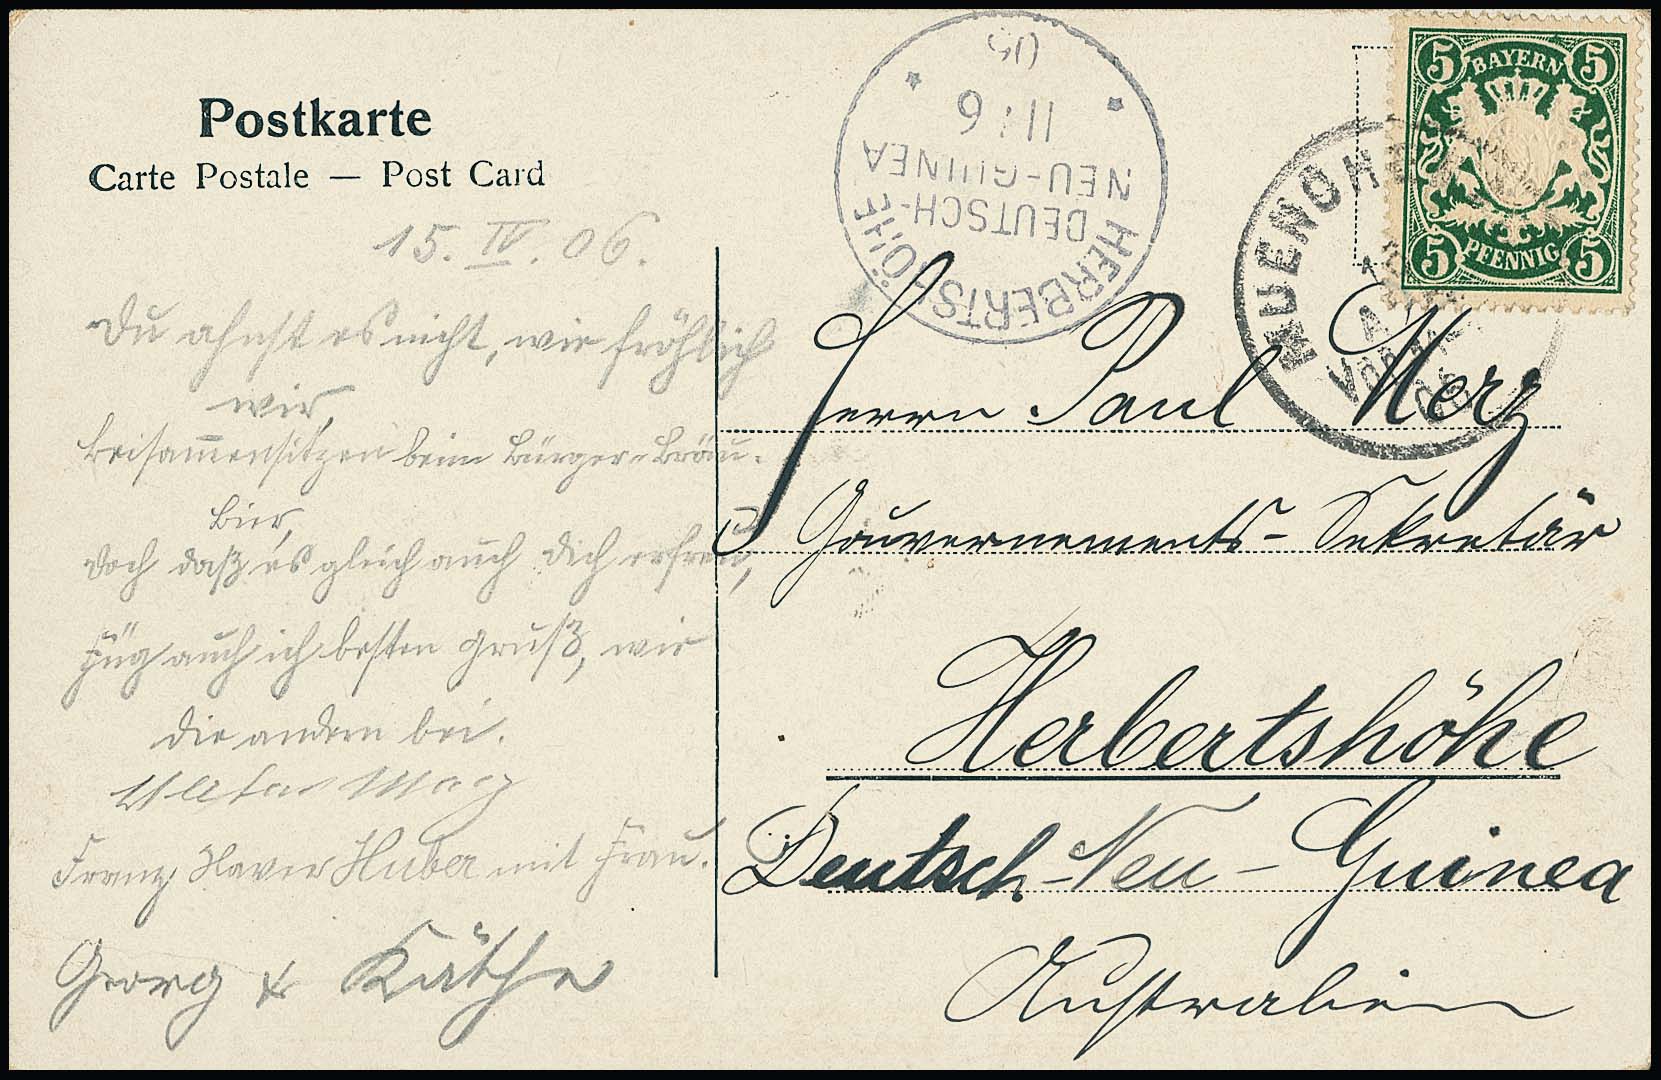 Postkarte
Carte Postale — Post Card
15. IV. 06.
Du ahnst es nicht, wie fröhlich
wir,
Beisam̅ensitzen beim Bürger-Bräu-
Bier,
Doch daß es gleich auch Dich erfreu,
Füg auch ich besten Gruß, wie
die andern bei.
Franz Xaver Huber mit Frau.
Georg & Käthe
HERBERTSHÖHE
DEUTSCH-
NEU-GUINEA
11/6
06
MUENCHEN
VORM.
06
5 BAYERN 5
5 PFENNIG 5
Herrn Paul Merz
Gouvernements-Sekretär
Herbertshöhe
Deutsch-Neu-Guinea
Australien